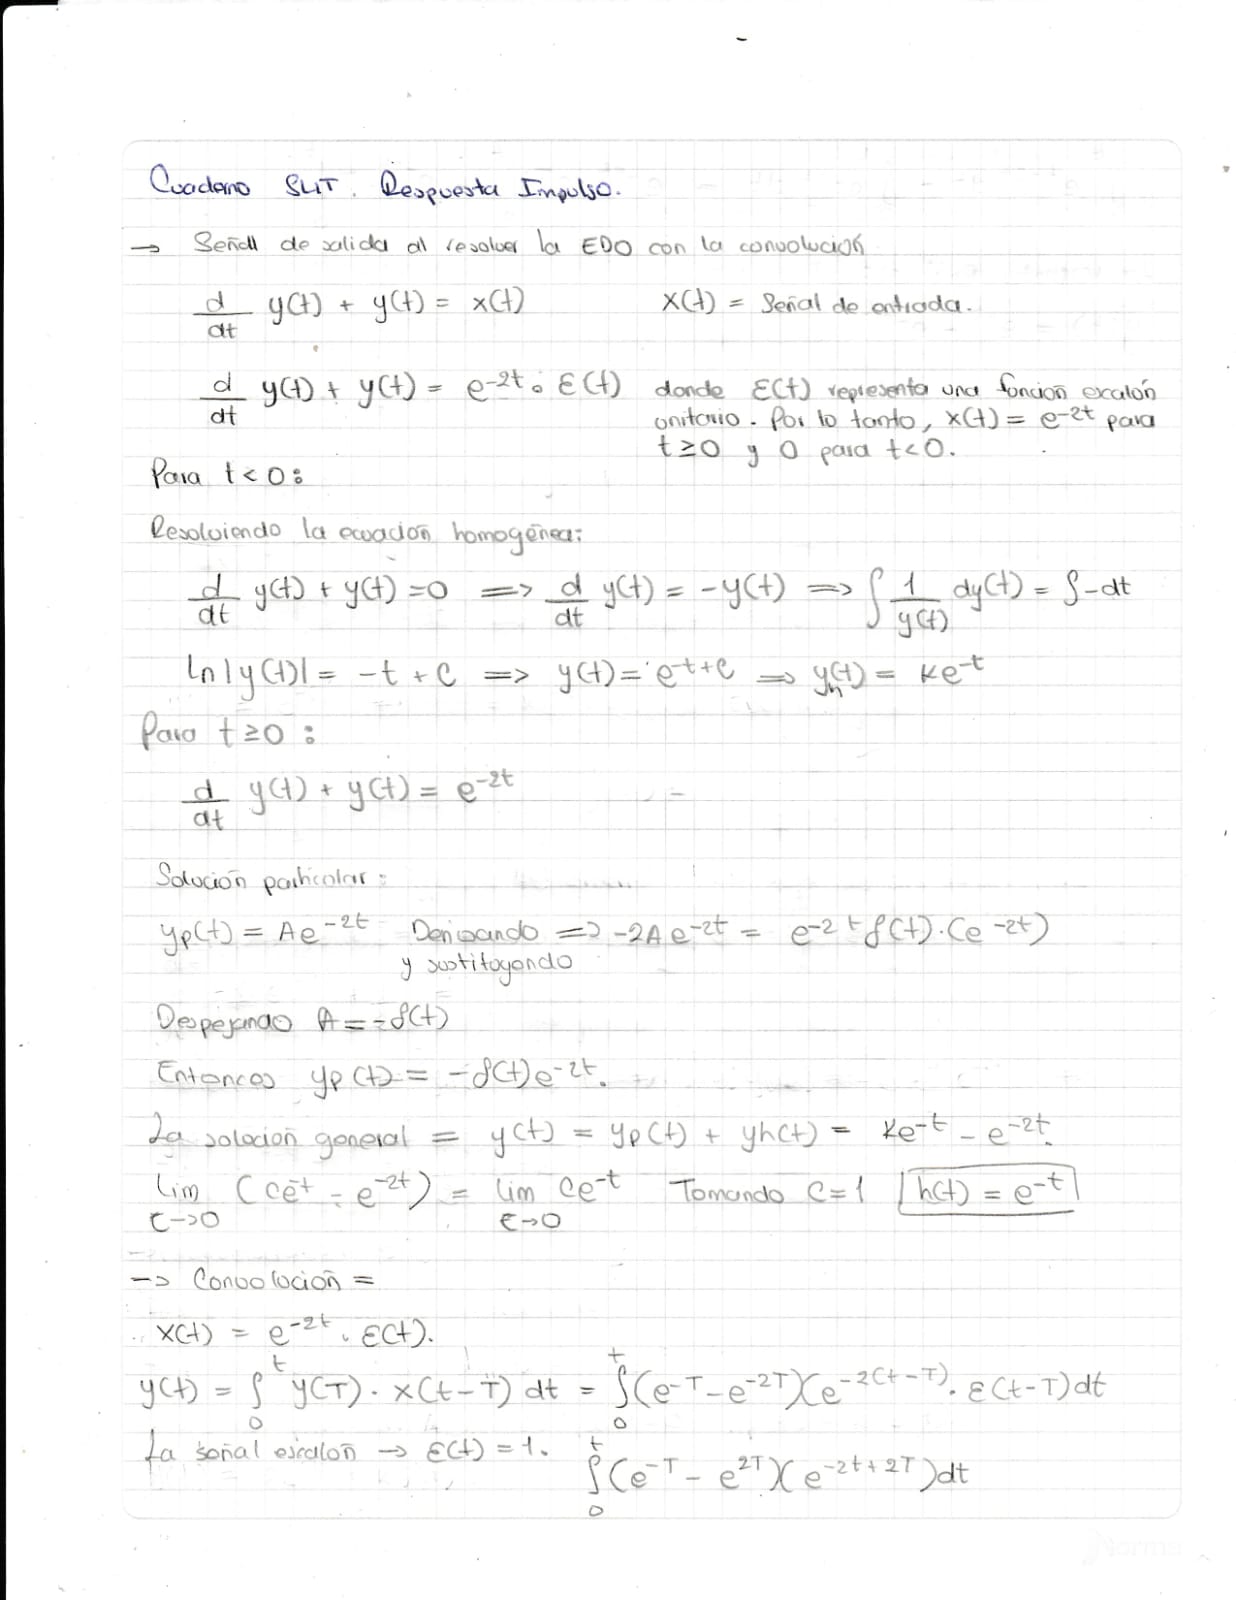 Cuaderno SLIT. Respuesta Impulso.
→ Señal de salida al resolver la EDO con la convolución
d/dt y(t) + y(t) = x(t)    x(t) = Señal de entrada.
d/dt y(t) + y(t) = e^-2t · ε(t)    donde ε(t) representa una función escalón
unitario. Por lo tanto, x(t) = e^-2t para
t ≥ 0 y 0 para t < 0.
Para t < 0 :
Resolviendo la ecuación homogénea:
d/dt y(t) + y(t) = 0 => d/dt y(t) = -y(t) => ∫ 1/y(t) dy(t) = ∫ -dt
ln|y(t)| = -t + C => y(t) = e^-t+C => yh(t) = Ke^-t
Para t ≥ 0 :
d/dt y(t) + y(t) = e^-2t
Solución particular:
yp(t) = Ae^-2t    Derivando => -2Ae^-2t = e^-2t δ(t)·(e^-2t)
y sustituyendo
Despejando A = -δ(t)
Entonces yp(t) = -δ(t)e^-2t.
La solución general = y(t) = yp(t) + yh(t) = Ke^-t - e^-2t.
Lim t->0 (Ce^-t - e^-2t) = Lim t->0 Ce^-t    Tomando C = 1    h(t) = e^-t
-> Convolución =
x(t) = e^-2t · ε(t).
y(t) = ∫_0^t y(T) · x(t-T) dt = ∫_0^t (e^-T - e^-2T)(e^-2(t-T) · ε(t-T) dt
La señal escalón -> ε(t) = 1.    ∫_0^t (e^-T - e^2T)(e^-2t+2T) dt
Norma